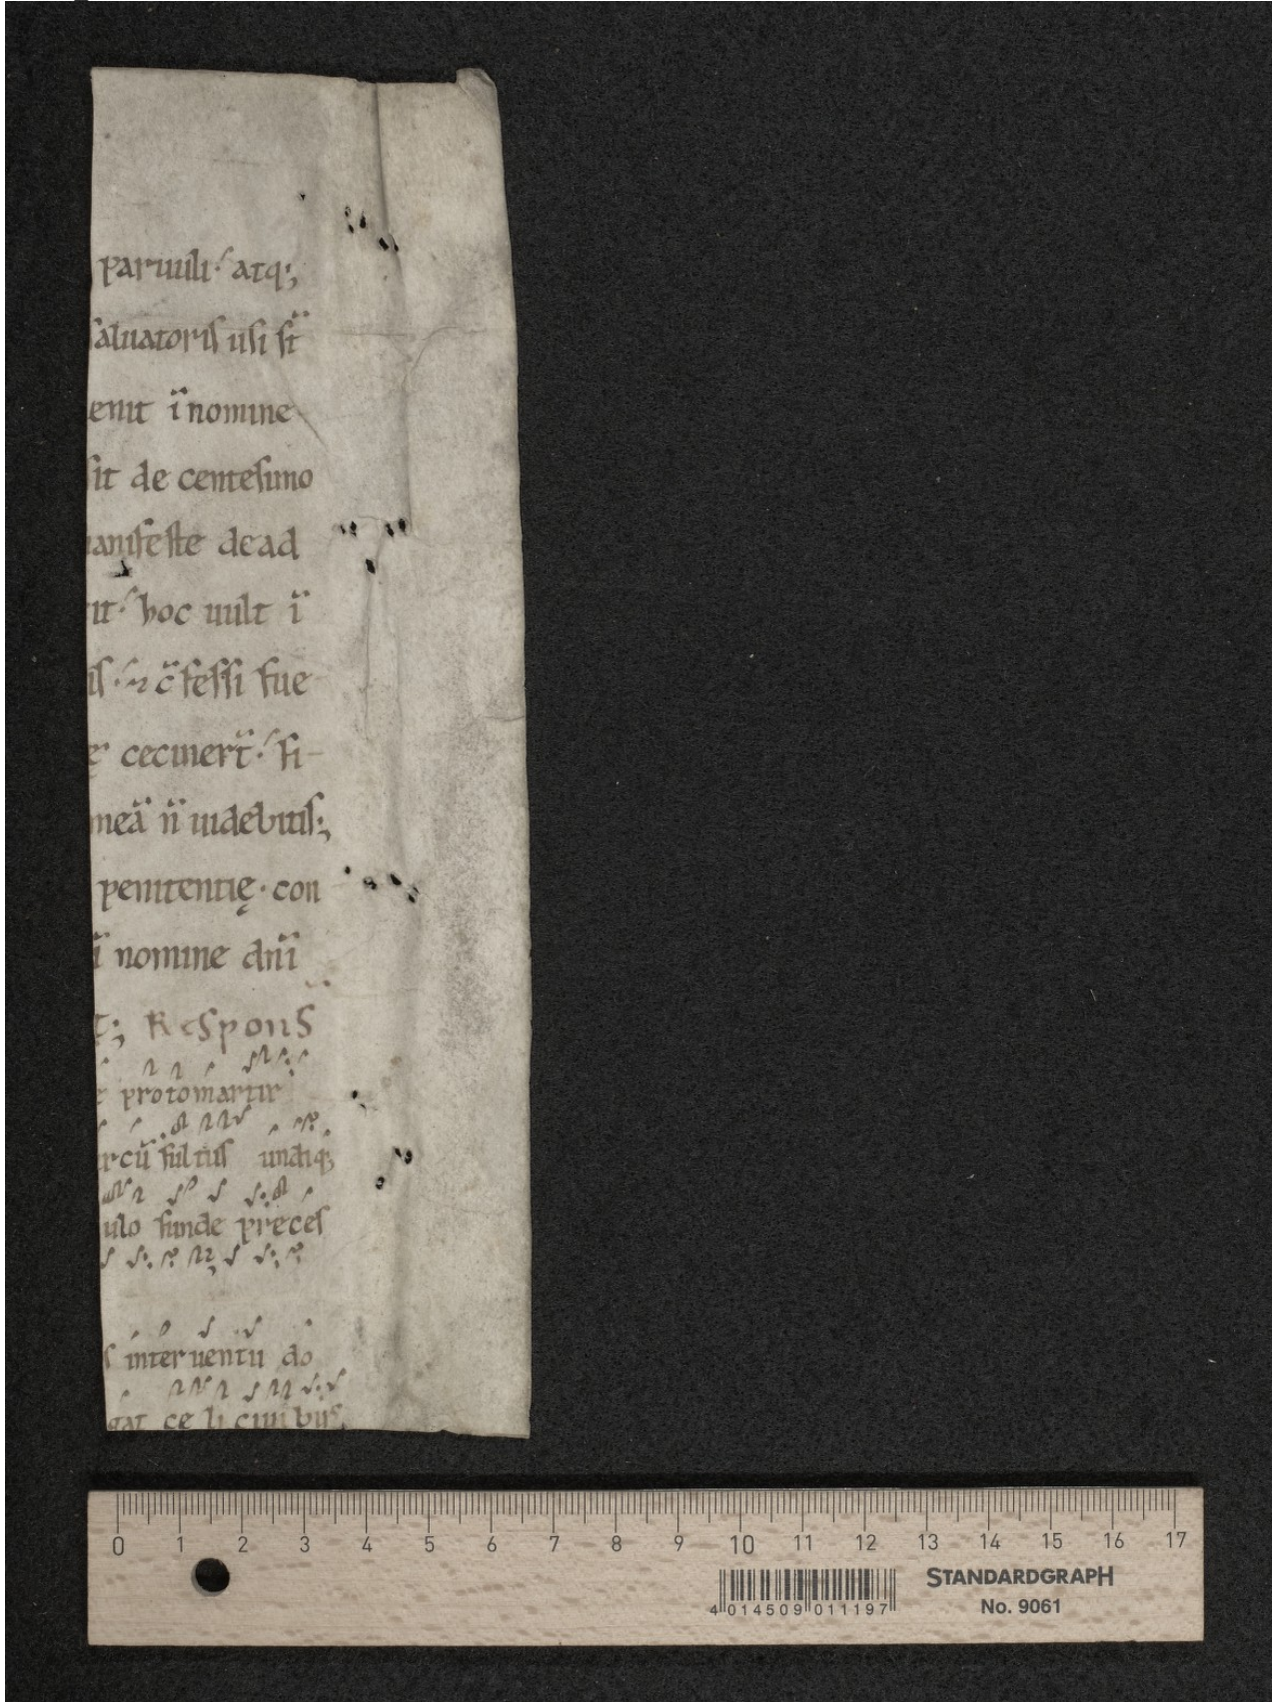 paruuli· atq;
saluatoris usi st̄
enit ī nomine
sit de centesimo
anifeste de ad
it· hoc uult ī
is· ⁊ c̄fessi fue
ę cecinert̄· si-
meā n̄ uidebitis;
penitentię· con
ī nomine dn̄i
t; Respons
protomartir
rcū fultus undiq;
ulo funde preces
s interuentu do
gat celi ciuibus.
0 1 2 3 4 5 6 7 8 9 10 11 12 13 14 15 16 17
4 014509 011197
STANDARDGRAPH
No. 9061